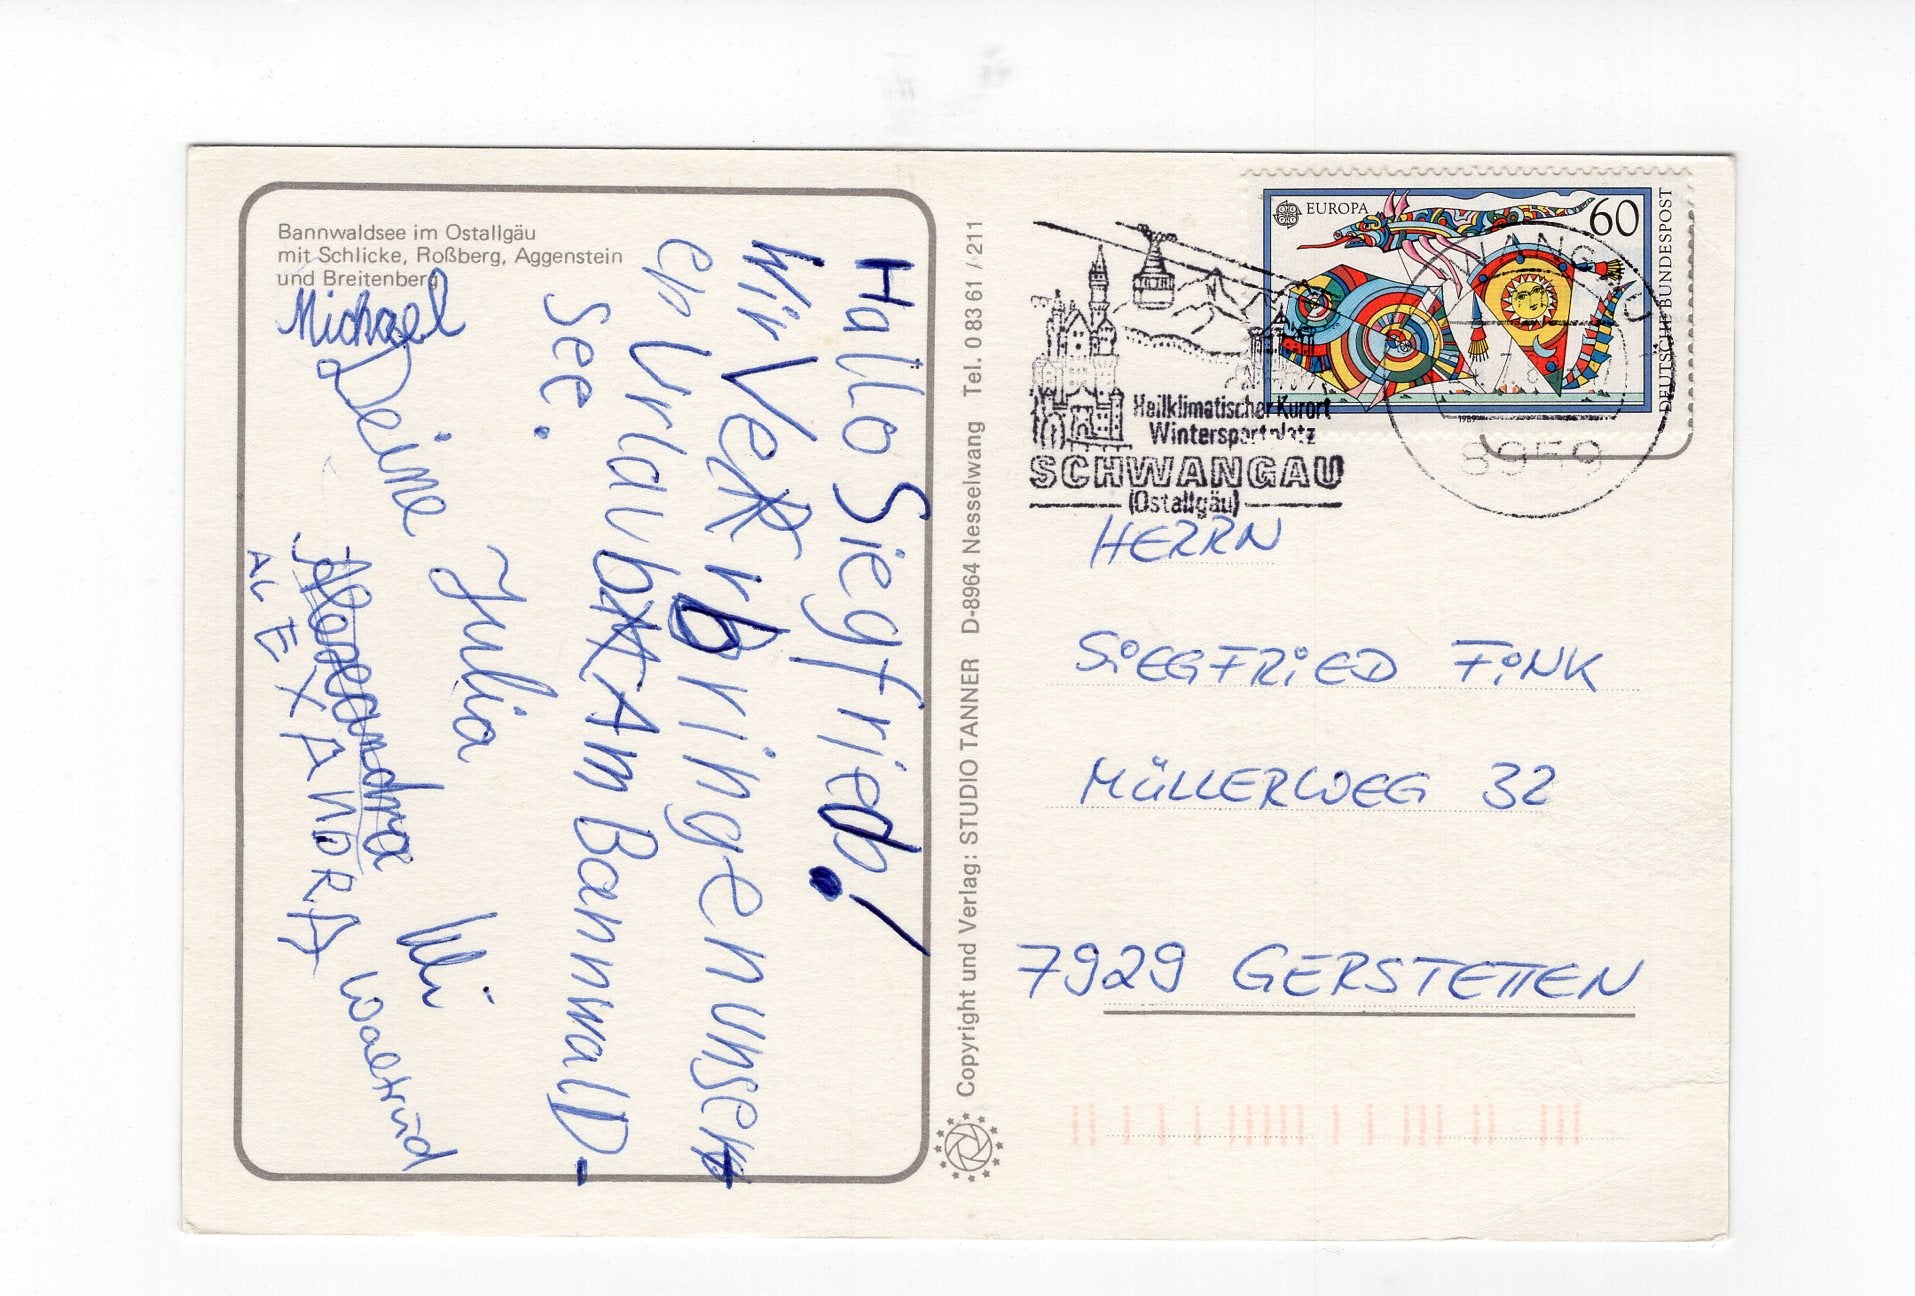 Bannwaldsee im Ostallgäu
mit Schlicke, Roßberg, Aggenstein
und Breitenberg
Hallo Siegfried!
Wir Verbringen unser-
en Urlaub Am BannwalD-
see.
Deine Julia
Michael
Uli
ALEXANDRA
Waltrud
Copyright und Verlag: STUDIO TANNER D-8964 Nesselwang Tel. 0 83 61 / 211
Heilklimatischer Kurort
Wintersportplatz
SCHWANGAU
(Ostallgäu)
EUROPA
60
DEUTSCHE BUNDESPOST
1989
SCHWANGAU
8959
HERRN
SIEGFRIED FINK
MÜLLERWEG 32
7929 GERSTETTEN